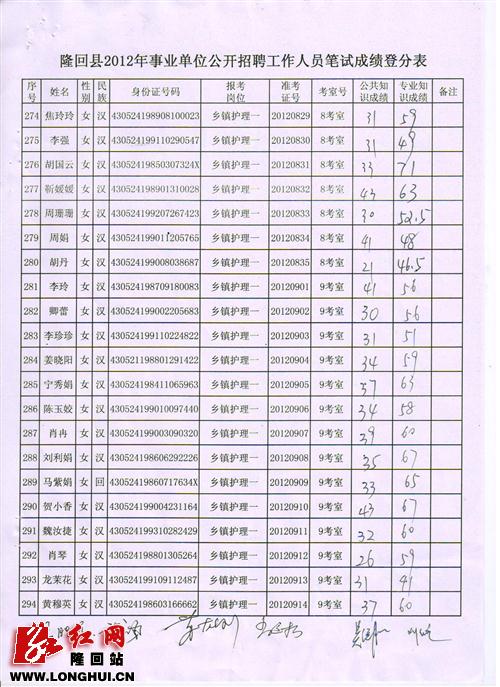 隆回县2012年事业单位公开招聘工作人员笔试成绩登分表
序号 姓名 性别 民族 身份证号码 报考岗位 准考证号 考室号 公共知识成绩 专业知识成绩 备注
274 焦玲玲 女 汉 430524198908100023 乡镇护理一 20120829 8考室 31 59
275 李强 女 汉 430524199110290547 乡镇护理一 20120830 8考室 31 49
276 胡国云 女 汉 43052419850307324X 乡镇护理一 20120831 8考室 33 71
277 靳媛媛 女 汉 430524198901310028 乡镇护理一 20120832 8考室 43 63
278 周珊珊 女 汉 430524199207267423 乡镇护理一 20120833 8考室 30 52.5
279 周娟 女 汉 430524199011205765 乡镇护理一 20120834 8考室 41 48
280 胡丹 女 汉 430524199008038687 乡镇护理一 20120835 8考室 21 46.5
281 李玲 女 汉 430524198709180083 乡镇护理一 20120901 9考室 41 56
282 卿蕾 女 汉 430524199002205683 乡镇护理一 20120902 9考室 30 56
283 李珍珍 女 汉 430524199110224822 乡镇护理一 20120903 9考室 31 51
284 姜晓阳 女 汉 430521198801291422 乡镇护理一 20120904 9考室 34 59
285 宁秀娟 女 汉 430524198411065963 乡镇护理一 20120905 9考室 37 63
286 陈玉姣 女 汉 430524199010097440 乡镇护理一 20120906 9考室 34 58
287 肖冉 女 汉 430524199003090320 乡镇护理一 20120907 9考室 39 60
288 刘利娟 女 汉 430524198606292226 乡镇护理一 20120908 9考室 35 67
289 马紫娟 女 回 43052419860717634X 乡镇护理一 20120909 9考室 33 65
290 贺小香 女 汉 430524199004231164 乡镇护理一 20120910 9考室 43 67
291 魏汝捷 女 汉 430524199310282429 乡镇护理一 20120911 9考室 32 60
292 肖琴 女 汉 430524198801305264 乡镇护理一 20120912 9考室 26 59
293 龙茉花 女 汉 430524199109112487 乡镇护理一 20120913 9考室 31 41
294 黄穆英 女 汉 430524198603166662 乡镇护理一 20120914 9考室 37 60
红网
隆回站
WWW.LONGHUI.CN